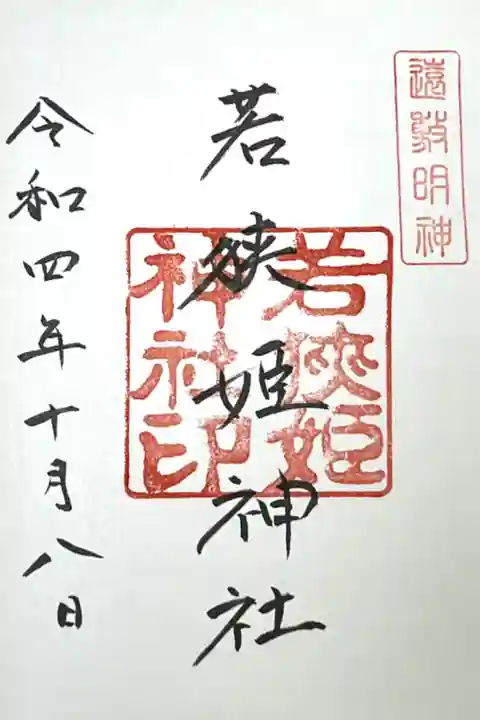 遠敷明神
若狭姫神社
若狹姫
神社印
令和四年十月八日